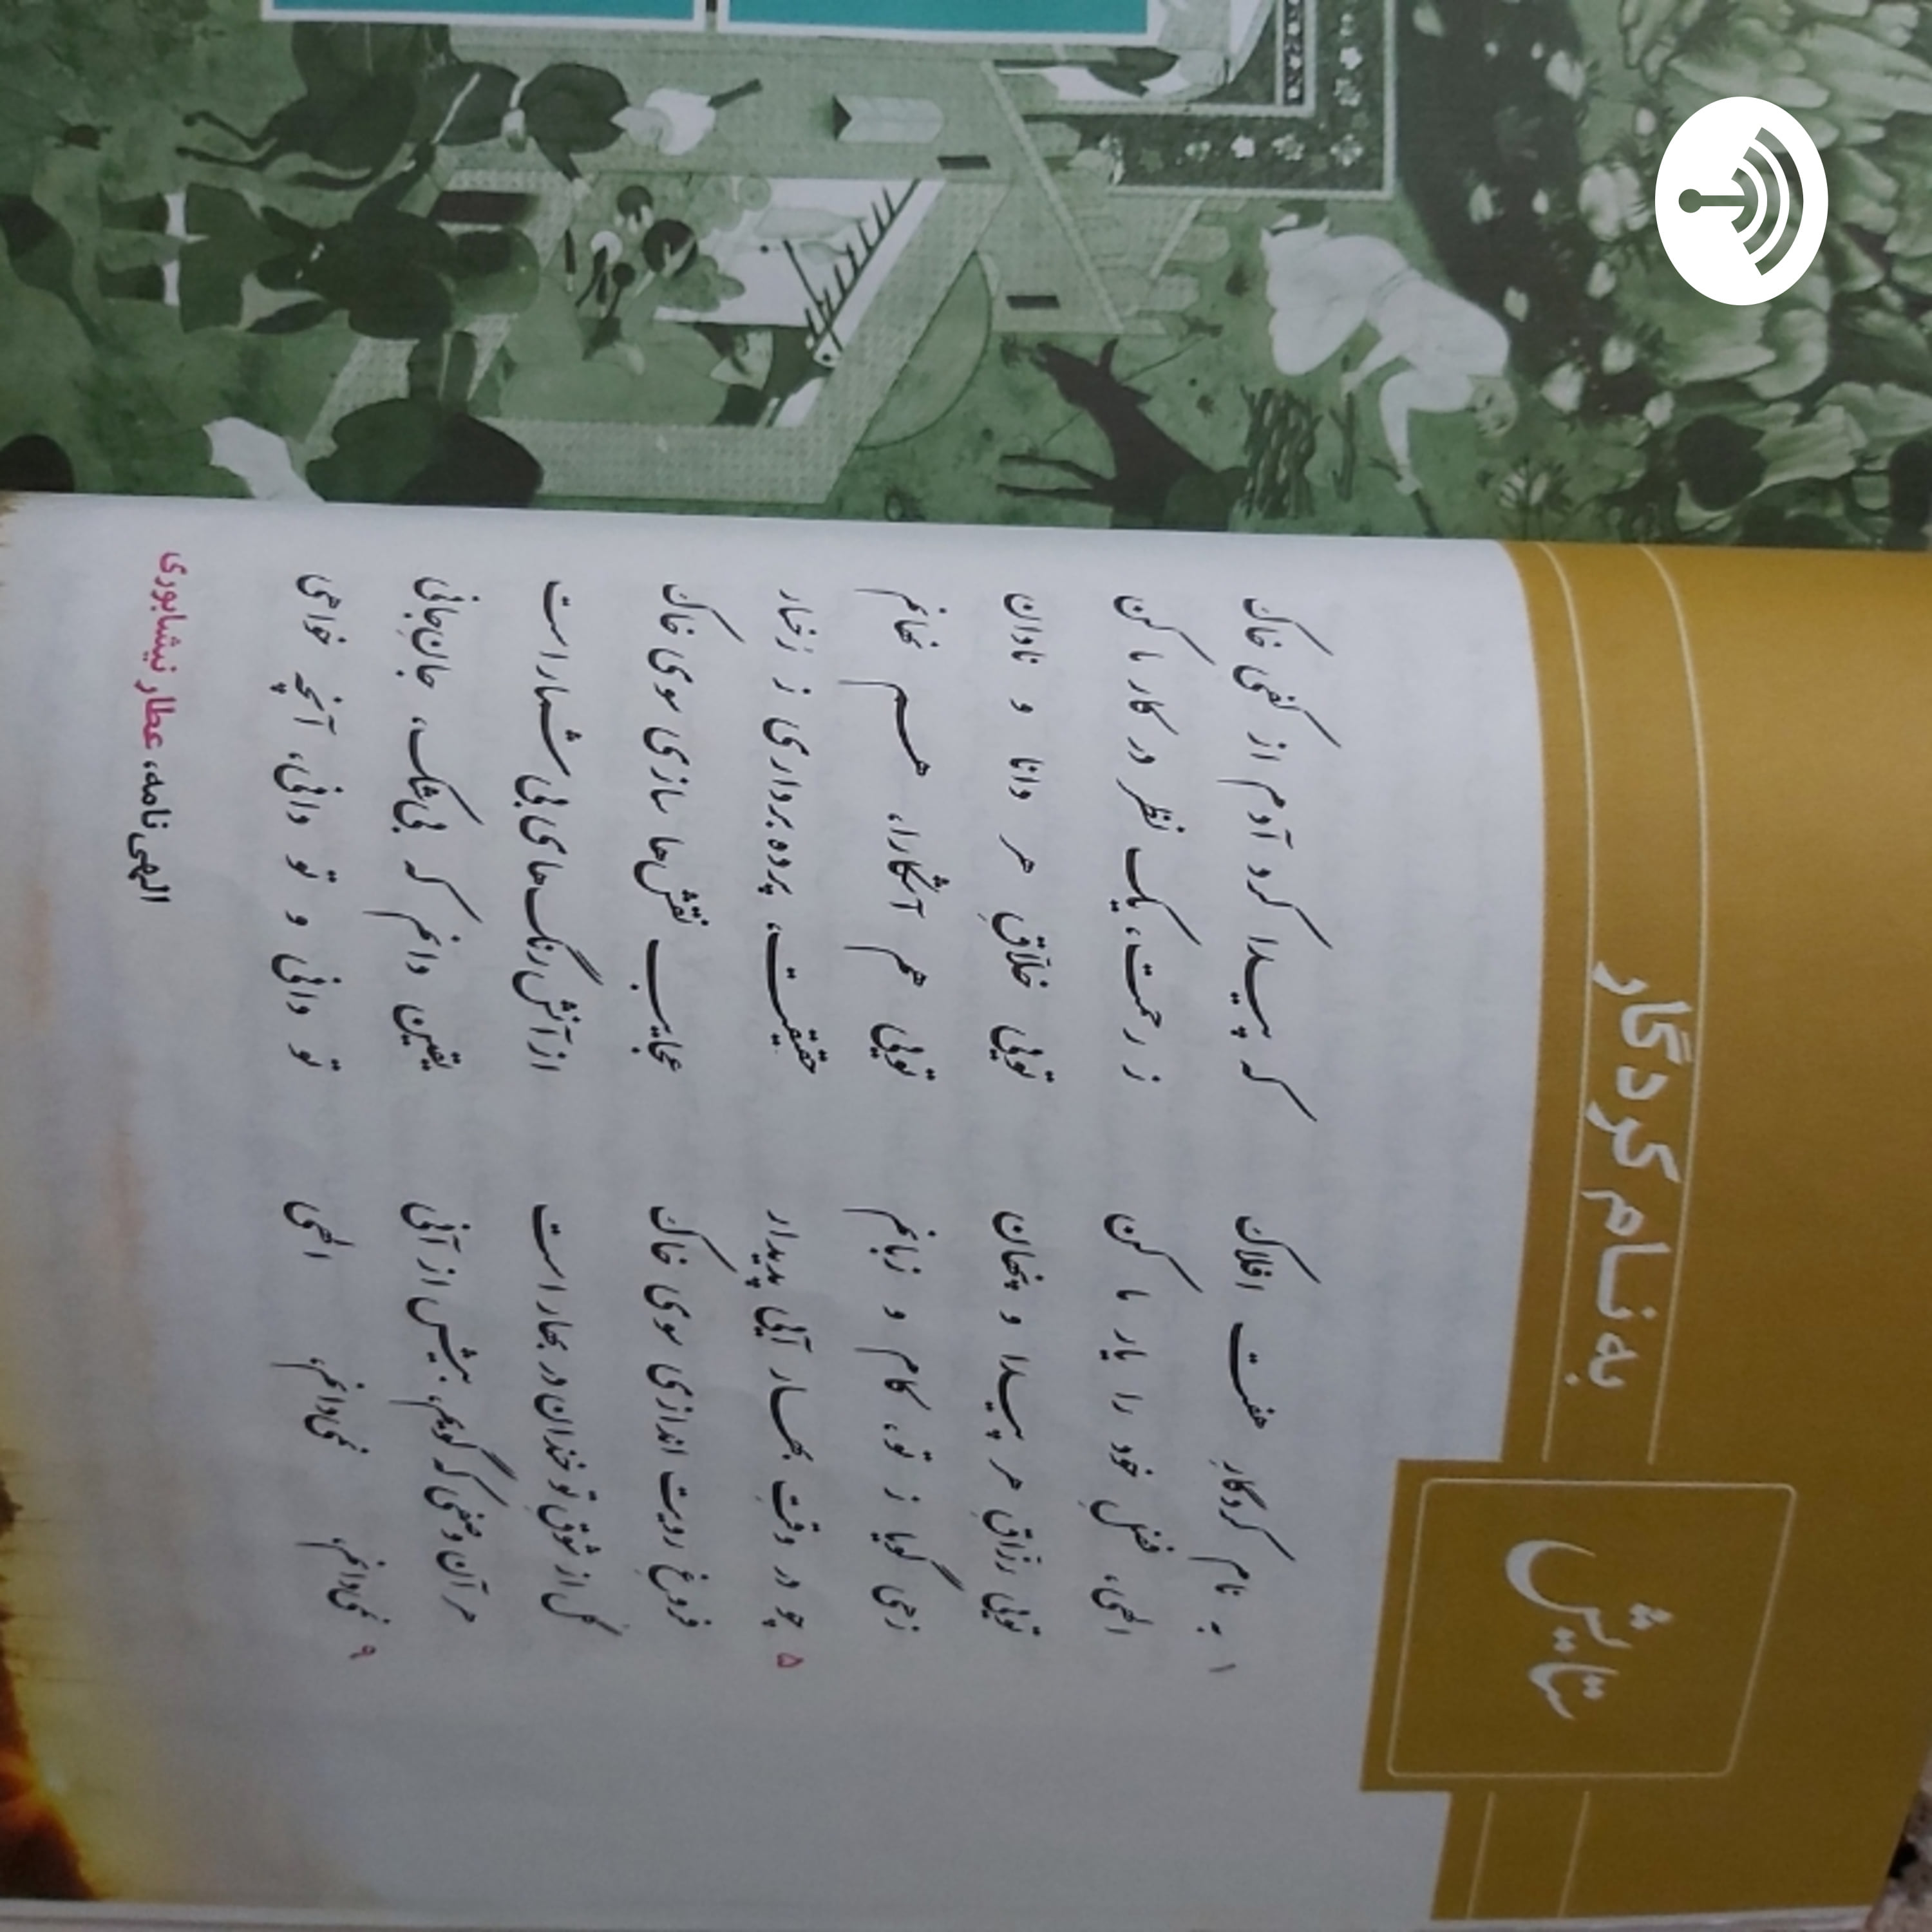 ستایش
به نام کردگار
۱ به نام کردگارِ هفت افلاک که پیدا کرد آدم از کفی خاک
الهی، فضلِ خود را یار ما کن ز رحمت، یک نظر در کار ما کن
تویی رزّاقِ هر پیدا و پنهان تویی خلّاقِ هر دانا و نادان
زهی گویا ز تو، کام و زبانم تویی هم آشکارا، هم نهانم
۵ چو در وقتِ بهار آیی پدیدار حقیقت، پرده برداری ز رُخسار
فروغِ رویت اندازی سوی خاک عجایب نقش‌ها سازی سوی خاک
گُل از شوقِ تو خندان در بهار است از آنش رنگ‌های بی‌شمار است
هر آن وصفی که گویم، بیش از آنی یقین دانم که بی‌شک، جانِ جانی
۹ نمی‌دانم، نمی‌دانم، الهی تو دانی و تو دانی، آنچه خواهی
الهی نامه، عطار نیشابوری